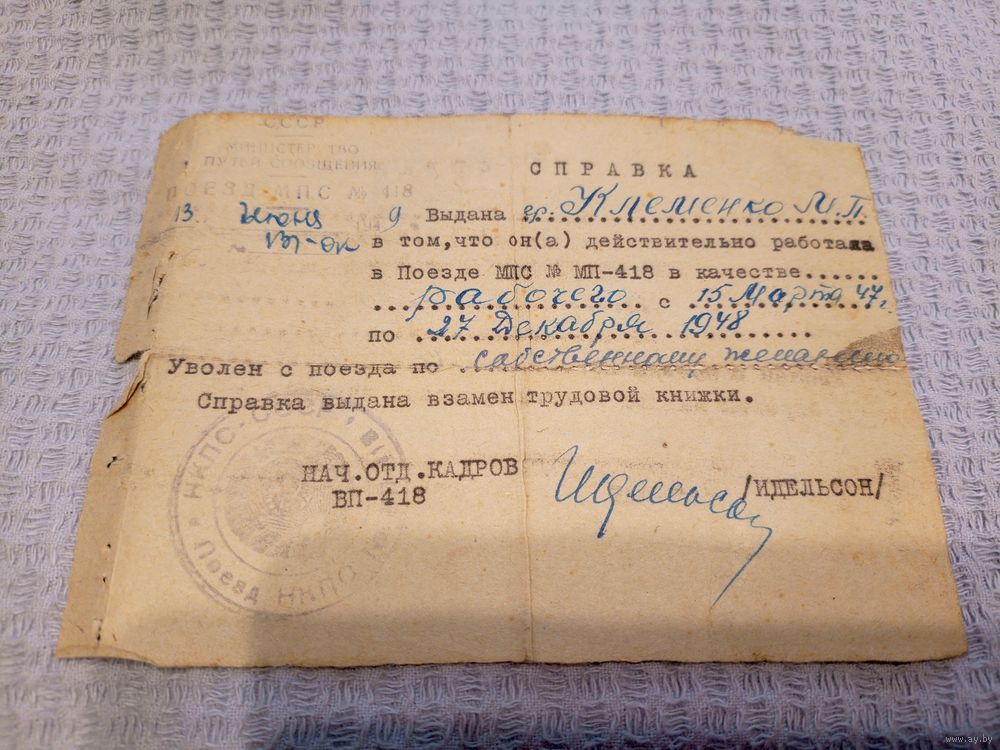 СССР
МИНИСТЕРСТВО
ПУТЕЙ СООБЩЕНИЯ
ПОЕЗД МПС № 418
13 Июня 194 9
СПРАВКА
Выдана гр. Клеменко М.П.
в том, что он(а) действительно работала
в Поезде МПС № МП-418 в качестве......
рабочего с 15 Марта 47г.
по 27 Декабря 1948
Уволен с поезда по собственному желанию
Справка выдана взамен трудовой книжки.
НАЧ.ОТД.КАДРОВ
ВП-418
/ИДЕЛЬСОН/
Идельсон
НКПС-СССР
Поезд НКПС
www.ay.by